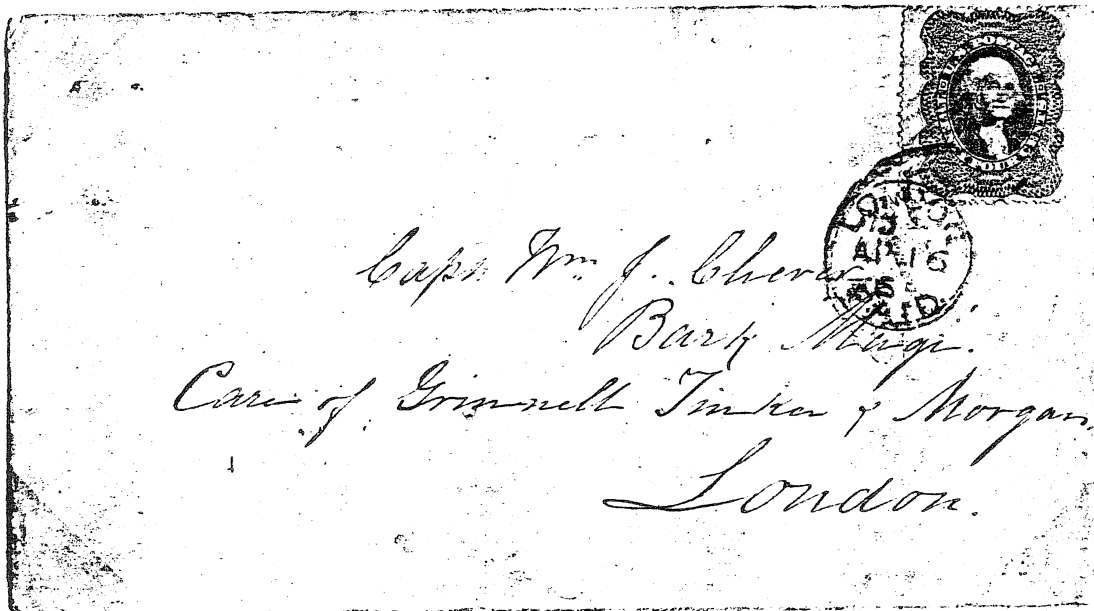 LONDON
AP 16
PAID
Capn Wm J. Chever
Bark Magi.
Care of Grinnell Tinker & Morgan
London.